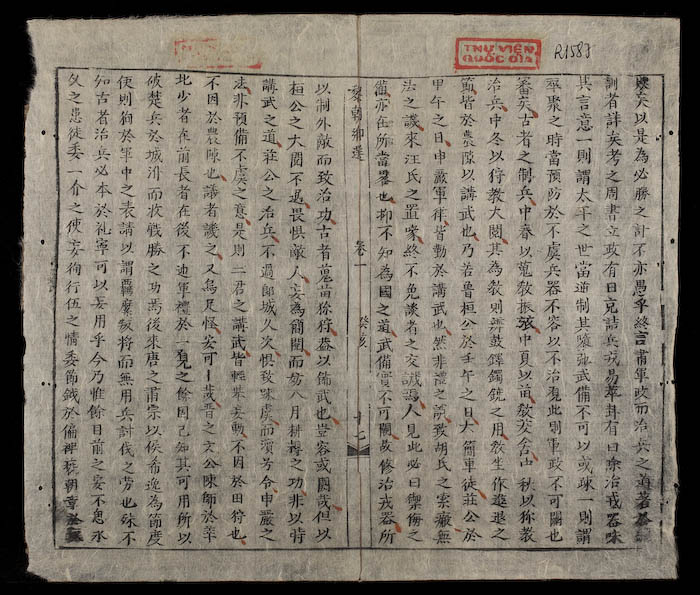 THƯ VIỆN
QUỐC GIA
R.1583
以是為必勝之計不亦愚乎終言肅軍政而治兵之道著
訓者詳矣考之周書立政有曰克詰兵戎易萃卦有曰除治戎器味
其言意一則謂太平之世當逆制其陵武備不可以或踈一則謂
萃聚之時當預防於不虞兵器不容以不治覩此則軍政不可闕也
審矣古者之制兵中春以蒐教振旅中夏以苗教茇舍中秋以狝教
治兵中冬以狩教大閱其為教則辨鼓鐸鐲鐃之用教坐作進退之
節皆於農隙以講武也乃若魯桓公於壬午之日大簡軍徒莊公於
甲午之日申嚴軍律皆勤於講武也然非禮之誚致胡氏之案癈無
法之譏來汪氏之置喙終不免議者之交誠人見此必曰禦侮之
備亦在所當畧也抑不知為國之道武備實不可闕故修治戎器所
黎朝鄉選 卷一 癸亥 十七
以制外敵而致治功古者蒐苗狝狩盖以備武也豈容或闕哉但以
桓公之大閱不過畏惧敵人妄為簡閱而妨八月耕耨之功非以時
講武之道莊公之治兵不過郎城久次惧致踈虞而瀆号令申嚴之
法非預備不虞之意是則二君之講武皆輕舉妄動不因於田狩也
不因於農隙也議者譏之又烏足怪安可一哉晋之文公陳師於莘
北少者在前長者在後不迪軍禮於一覓之餘因已知其可用所以
破楚兵於城而收戰勝之功焉後來唐之肅宗以侯希逸為節度
使則狥於軍中之表請以謂羈縻叛將而無用兵討伐之劳也殊不
知古者治兵必本於礼寕可以妄用乎今乃惟餘目前之安不思永
久之患徒委一介之使妄徇行伍之情委節鉞於偏裨致朝章